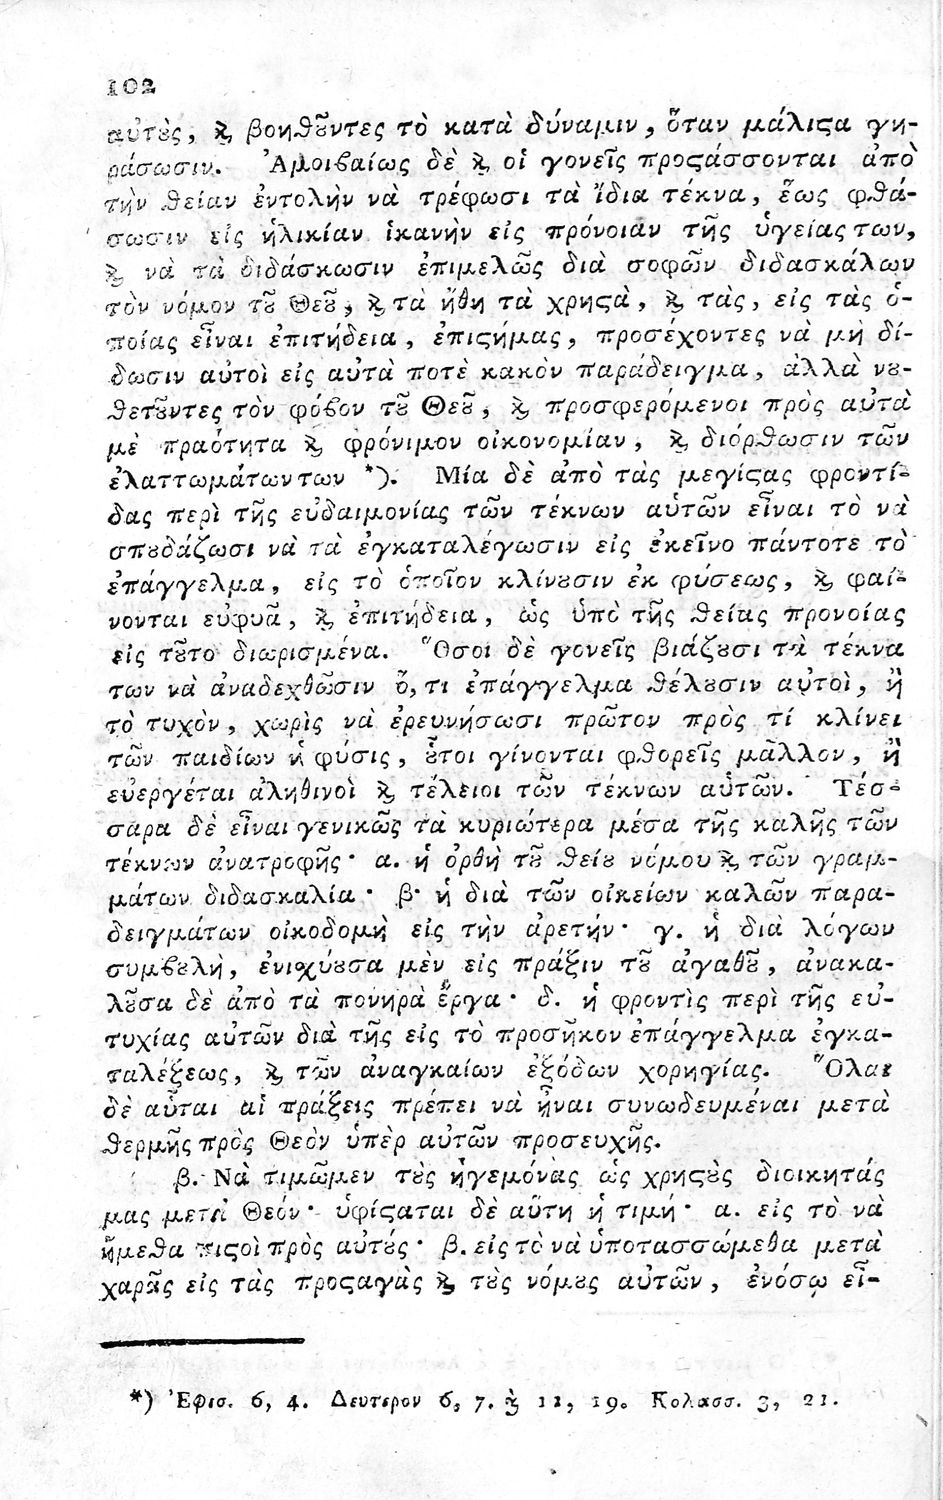 102
αὐτȣ̀ς, ϗ̀ βοηθȣ͂ντες τὸ κατὰ δύναμιν, ὅταν μάλιϛα γη-
ράσωσιν. Ἀμοιβαίως δὲ ϗ̀ οἱ γονεῖς προϛάσσονται ἀπὸ
τὴν θείαν ἐντολὴν νὰ τρέφωσι τὰ ἴδια τέκνα, ἕως φθά-
σωσιν εἰς ἡλικίαν ἱκανὴν εἰς πρόνοιαν τῆς ὑγείας των,
ϗ̀ νὰ τὰ διδάσκωσιν ἐπιμελῶς διὰ σοφῶν διδασκάλων
τὸν νόμον τȣ͂ Θεȣ͂, ϗ̀ τὰ ἤθη τὰ χρηϛὰ, ϗ̀ τὰς, εἰς τὰς ὁ-
ποίας εἶναι ἐπιτήδεια, ἐπιϛήμας, προσέχοντες νὰ μὴ δί-
δωσιν αὐτοὶ εἰς αὐτὰ ποτὲ κακὸν παράδειγμα, ἀλλὰ νȣ-
θετȣ͂ντες τὸν φόβον τȣ͂ Θεȣ͂, ϗ̀ προσφερόμενοι πρὸς αὐτὰ
μὲ πραότητα ϗ̀ φρόνιμον οἰκονομίαν, ϗ̀ διόρθωσιν τῶν
ἐλαττωμάτων των *). Μία δὲ ἀπὸ τὰς μεγίϛας φροντί-
δας περὶ τῆς εὐδαιμονίας τῶν τέκνων αὑτῶν εἶναι τὸ νὰ
σπȣδάζωσι νὰ τὰ ἐγκαταλέγωσιν εἰς ἐκεῖνο πάντοτε τὸ
ἐπάγγελμα, εἰς τὸ ὁποῖον κλίνȣσιν ἐκ φύσεως, ϗ̀ φαί-
νονται εὐφυᾶ, ϗ̀ ἐπιτήδεια, ὡς ὑπὸ τῆς θείας προνοίας
εἰς τȣ͂το διωρισμένα. Ὅσοι δὲ γονεῖς βιάζȣσι τὰ τέκνα
των νὰ ἀναδεχθῶσιν ὅ, τι ἐπάγγελμα θέλȣσιν αὐτοὶ, ἢ
τὸ τυχὸν, χωρὶς νὰ ἐρευνήσωσι πρῶτον πρὸς τί κλίνει
τῶν παιδίων ἡ φύσις, ȣ̔͂τοι γίνονται φθορεῖς μᾶλλον, ἢ
εὐεργέται ἀληθινοὶ ϗ̀ τέλειοι τῶν τέκνων αὑτῶν. Τέσ-
σαρα δὲ εἶναι γενικῶς τὰ κυριώτερα μέσα τῆς καλῆς τῶν
τέκνων ἀνατροφῆς· α. ἡ ὀρθὴ τȣ͂ θείȣ νόμου ϗ̀ τῶν γραμ-
μάτων διδασκαλία· β· ἡ διὰ τῶν οἰκείων καλῶν παρα-
δειγμάτων οἰκοδομὴ εἰς τὴν ἀρετήν· γ. ἡ διὰ λόγων
συμβȣλὴ, ἐνισχύȣσα μὲν εἰς πράξιν τȣ͂ ἀγαθȣ͂, ἀνακα-
λȣ͂σα δὲ ἀπὸ τὰ πονηρὰ ἔργα· δ. ἡ φροντὶς περὶ τῆς εὐ-
τυχίας αὐτῶν διὰ τῆς εἰς τὸ προσῆκον ἐπάγγελμα ἐγκα-
ταλέξεως, ϗ̀ τῶν ἀναγκαίων ἐξόδων χορηγίας. Ὅλαι
δὲ αὗται αἱ πράξεις πρέπει νὰ ἦναι συνωδευμέναι μετὰ
θερμῆς πρὸς Θεὸν ὑπὲρ αὐτῶν προσευχῆς.
β. Νὰ τιμῶμεν τȣ̀ς ἡγεμόνας ὡς χρηϛȣ̀ς διοικητάς
μας μετὰ Θεόν· ὑφίϛαται δὲ αὕτη ἡ τιμή· α. εἰς τὸ νὰ
ἤμεθα πιϛοὶ πρὸς αὐτȣ́ς· β. εἰς τὸ νὰ ὑποτασσώμεθα μετὰ
χαρᾶς εἰς τὰς προϛαγὰς ϗ̀ τȣ̀ς νόμȣς αὐτῶν, ἐνόσῳ εἶ-
*) Ἐφεσ. 6, 4. Δευτερον 6, 7. ϗ̀ 11, 19. Κολασσ. 3, 21.